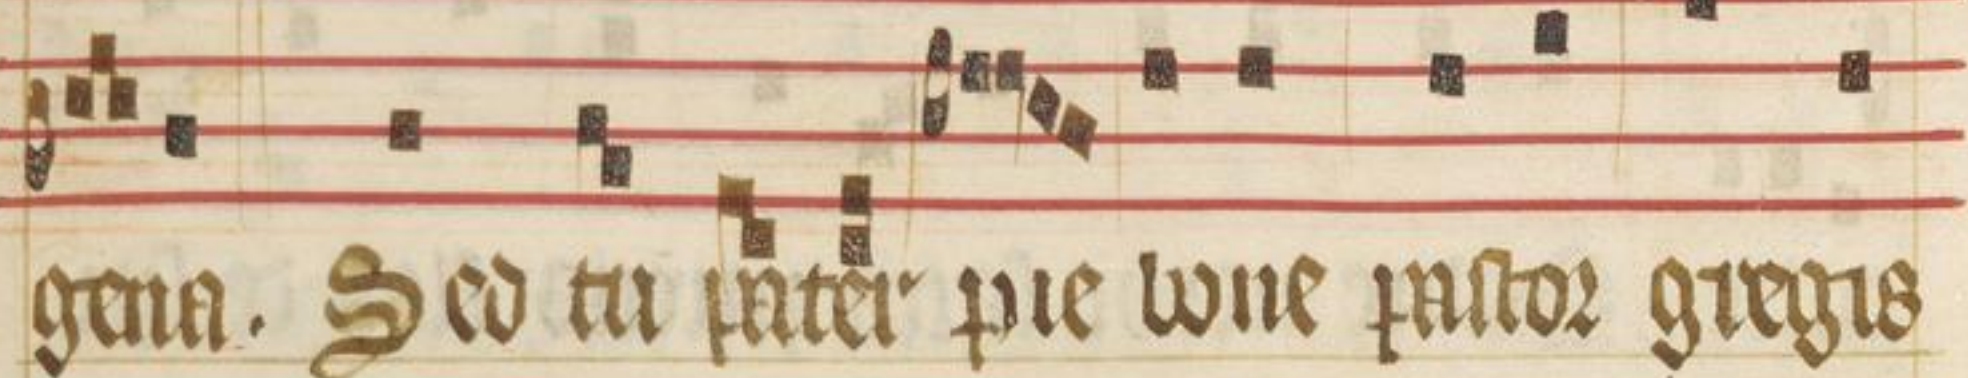 gena. Sed tu pater pie bone pastor gregis